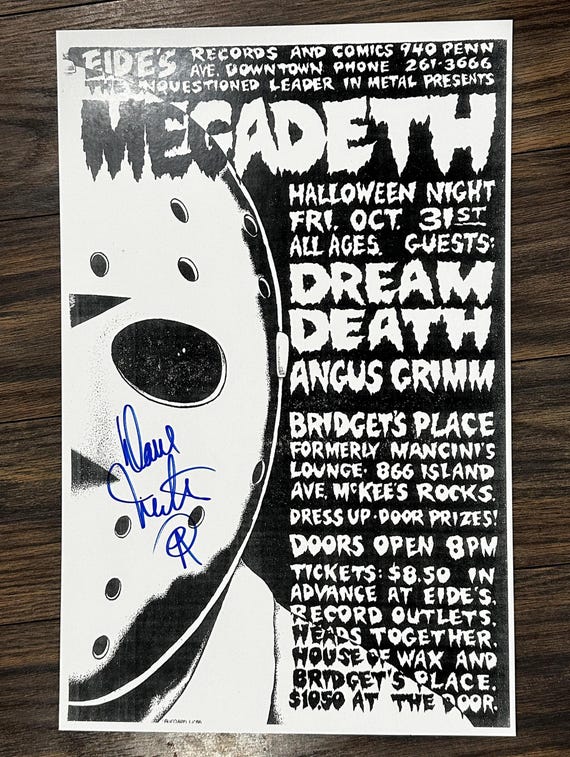 EIDE'S RECORDS AND COMICS 940 PENN
AVE. DOWNTOWN PHONE 261-3666
THE UNQUESTIONED LEADER IN METAL PRESENTS
MEGADETH
HALLOWEEN NIGHT
FRI. OCT. 31ST
ALL AGES. GUESTS:
DREAM
DEATH
ANGUS GRIMM
BRIDGET'S PLACE
FORMERLY MANCINI'S
LOUNGE· 866 ISLAND
AVE. MCKEE'S ROCKS.
DRESS UP·DOOR PRIZES!
DOORS OPEN 8PM
TICKETS: $8.50 IN
ADVANCE AT EIDE'S.
RECORD OUTLETS.
HEADS TOGETHER.
HOUSE OF WAX AND
BRIDGET'S PLACE.
$10.50 AT THE DOOR.
Dave